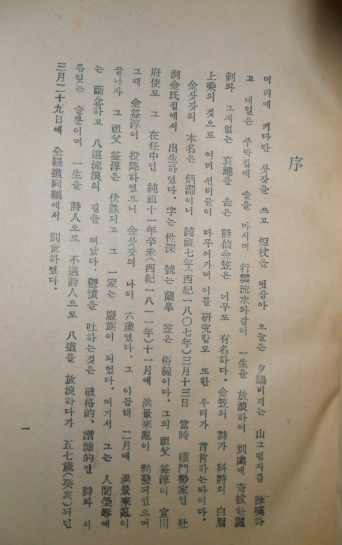 序
머리에 커다란 삿갓을 쓰고 短杖을 벗삼아 오늘은 夕陽비끼는 山그림자를 詠嘆하
고 내일은 주막집에 술을 마시며 行雲流水와같이 一生을 放浪하여 到處에 奇拔한諷
刺와 그지없는 哀愁를 읊은 詩仙金笠은 너무도 有名하다. 金笠의 詩가 科詩의 白眉
上乘의 것으로 여며 선비들이 다투어가며 이를 硏究함도 또한 우리가 首肯하는바이다.
金삿갓의 本名은 炳淵이니 純祖七年(西紀一八○七年)三月十三日 當時 權門勢家인 壯
洞金氏집에서 出生하였다. 字는 性深 號는 蘭皐 笠은 俗稱이다. 그의 祖父 益淳이 宣川
府使로 그 在任中인 純祖十一年辛未(西紀一八一一年)十一月에 洪景來亂이 勃發되었으며
그때 金益淳이 投降하였으니 金삿갓의 나이 六歲였다. 그 이듬해 二月에 洪景來亂이
끝나자 그 祖父 益淳은 伏誅되고 그 一家는 廢族이 되었다. 여기서 그는 人間榮辱에
는 斷念하고 八道流浪의 길을 떠났다. 鬱憤을 吐하는것은 破格的, 諧謔的인 詩와 시
름잊는 술뿐이었다. 一生을 詩人으로 不遇詩人으로 八道를 放浪하다가 五七歲(癸亥)되던
三月二十九日에 全羅道同福에서 別世하였다.
一